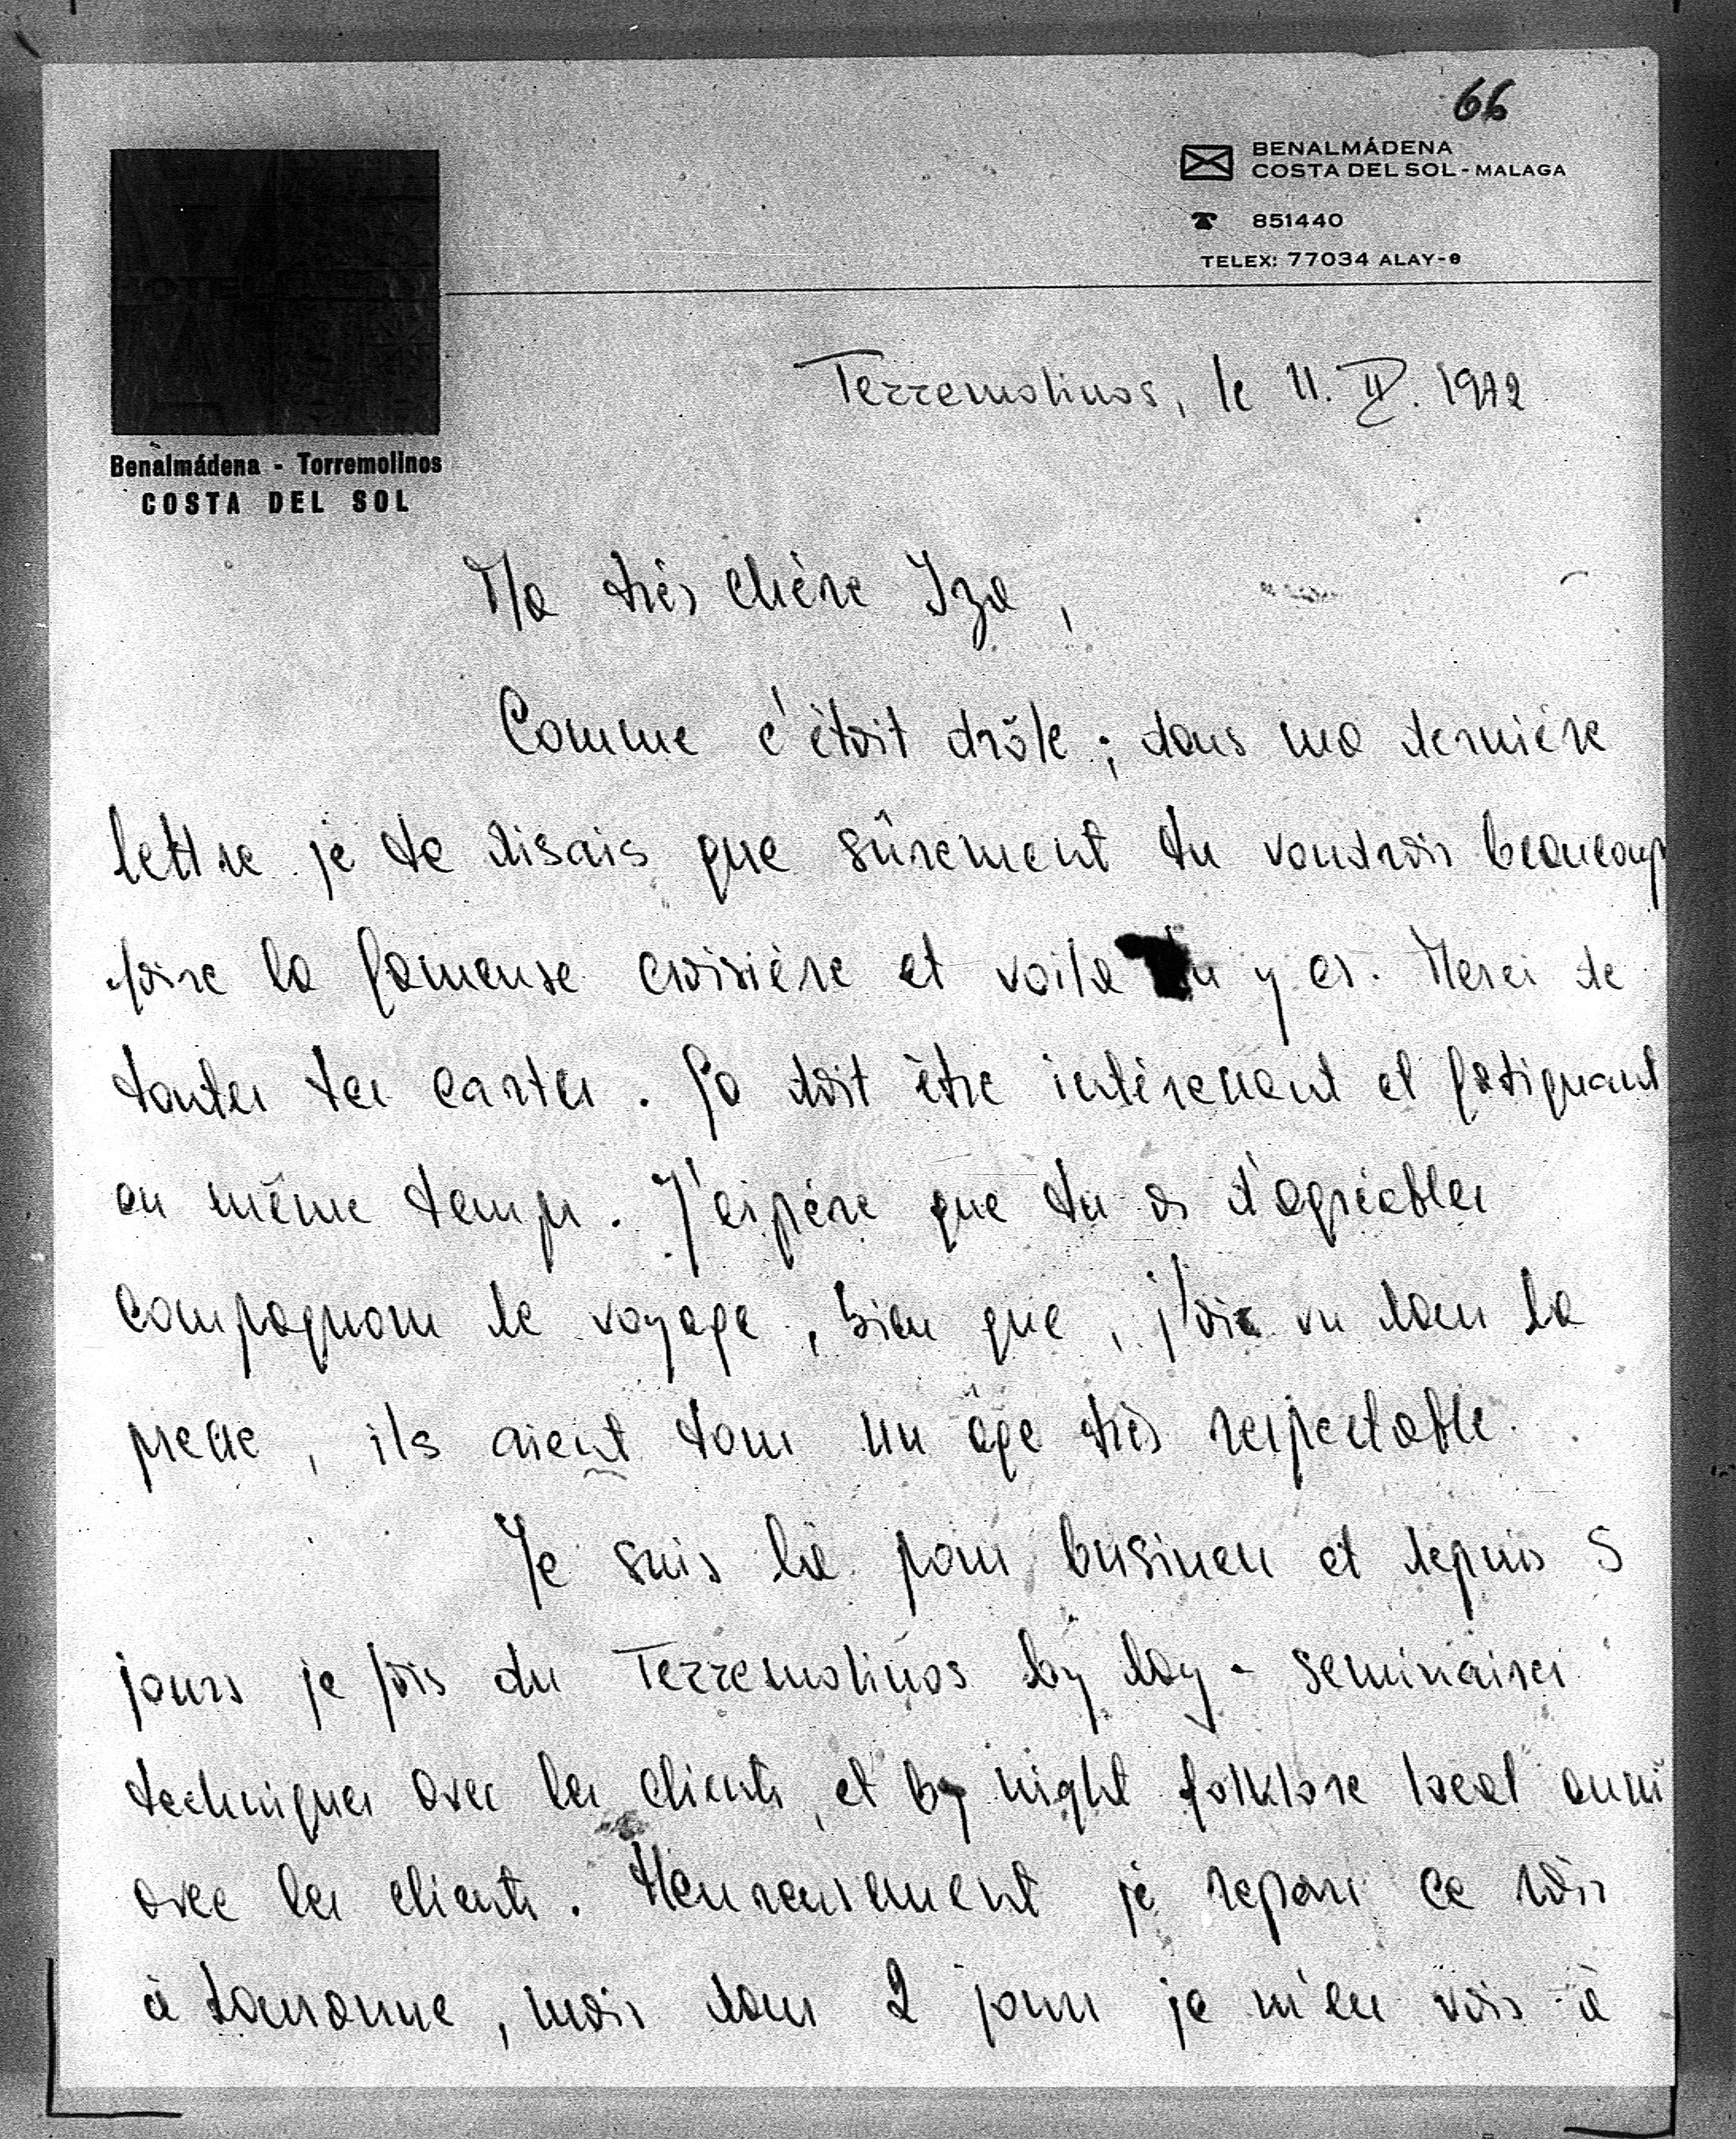 66
BENALMÁDENA
COSTA DEL SOL - MALAGA
851440
TELEX: 77034 ALAY-e
Benalmádena - Torremolinos
COSTA DEL SOL
Terremolinos, le 11. IV. 1972
Ma très chère Iza,
Comme c'ètait drôle ; dans ma dernière
lettre je te disais que sûrement tu voudrais beaucoup
faire la fameuse croisière et voila tu y es. Merci de
toutes tes cartes. Ça doit être intéressant et fatiguant
en même temps. J'espére que tu as d'agréables
compagnons de voyage, bien que, j'ai vu dans la
presse, ils aient tous un âge très respectable.
Je suis là pour business et depuis 5
jours je fais du Terremolinos by day - seminaires
techniques avec les clients, et by night folklore local aussi
avec les clients. Heureusement je repars ce soir
à Lausanne, mais dans 2 jours je m'en vais à